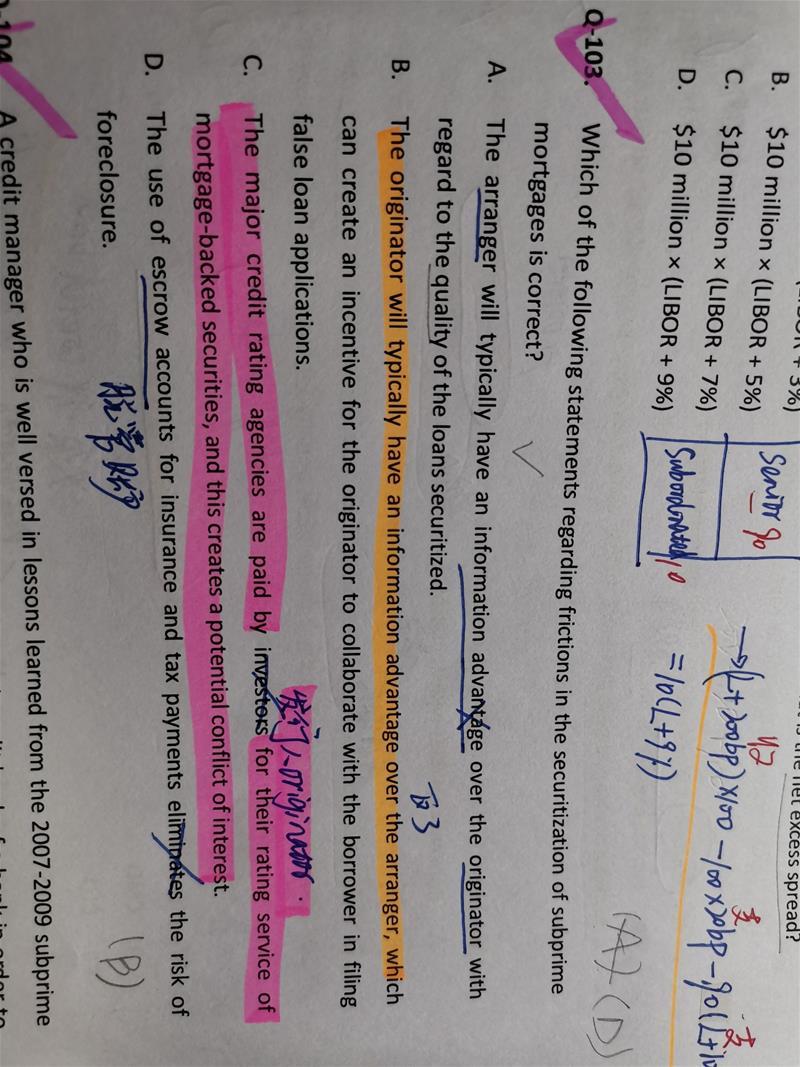 is the net excess spread?
(LIBOR + 3%)
B. $10 million × (LIBOR + 5%)
C. $10 million × (LIBOR + 7%)
D. $10 million × (LIBOR + 9%)
Senior 90
Subordinated 10
→(L+200bp)×100 -100×20bp -90(L+10
收
支
支
=10(L+9%)
(A) (D)
Q-103. Which of the following statements regarding frictions in the securitization of subprime
mortgages is correct?
A. The arranger will typically have an information advantage over the originator with
regard to the quality of the loans securitized.
B. The originator will typically have an information advantage over the arranger, which
can create an incentive for the originator to collaborate with the borrower in filing
false loan applications.
发行人originator.
C. The major credit rating agencies are paid by investors for their rating service of
mortgage-backed securities, and this creates a potential conflict of interest.
D. The use of escrow accounts for insurance and tax payments eliminates the risk of
foreclosure.
(B)
Q-104. A credit manager who is well versed in lessons learned from the 2007-2009 subprime